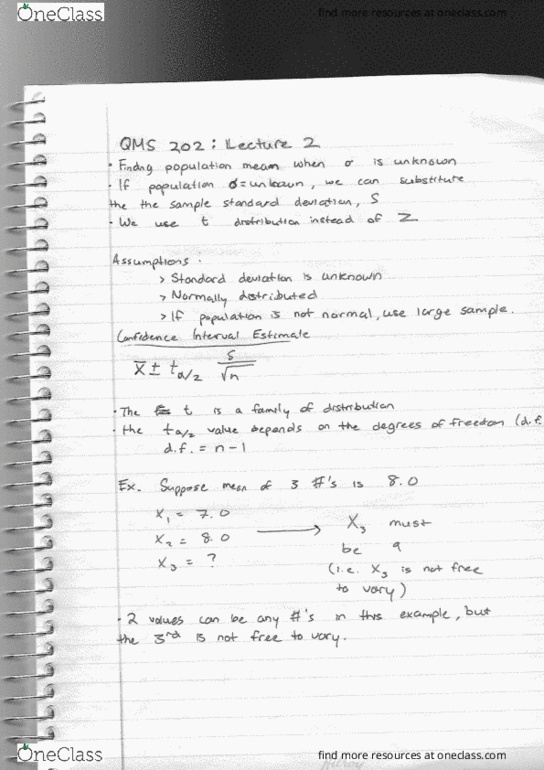 OneClass
find more resources at oneclass.com
QMS 202: Lecture 2
· Finding population mean when σ is unknown
· If population σ=unknown, we can substitute
the the sample standard deviation, S
· We use t distribution instead of Z
Assumptions:
> Standard deviation is unknown
> Normally distributed
> If population is not normal, use large sample.
Confidence Interval Estimate
X̄ ± tα/2 S/√n
· The t is a family of distribution
· the tα/2 value depends on the degrees of freedom (d.f.
d.f. = n-1
Ex. Suppose mean of 3 #'s is 8.0
X₁ = 7.0
X₂ = 8.0
X₃ = ?
→ X₃ must
be 9
(i.e. X₃ is not free
to vary)
· 2 values can be any #'s in this example, but
the 3rd is not free to vary.
OneClass
find more resources at oneclass.com